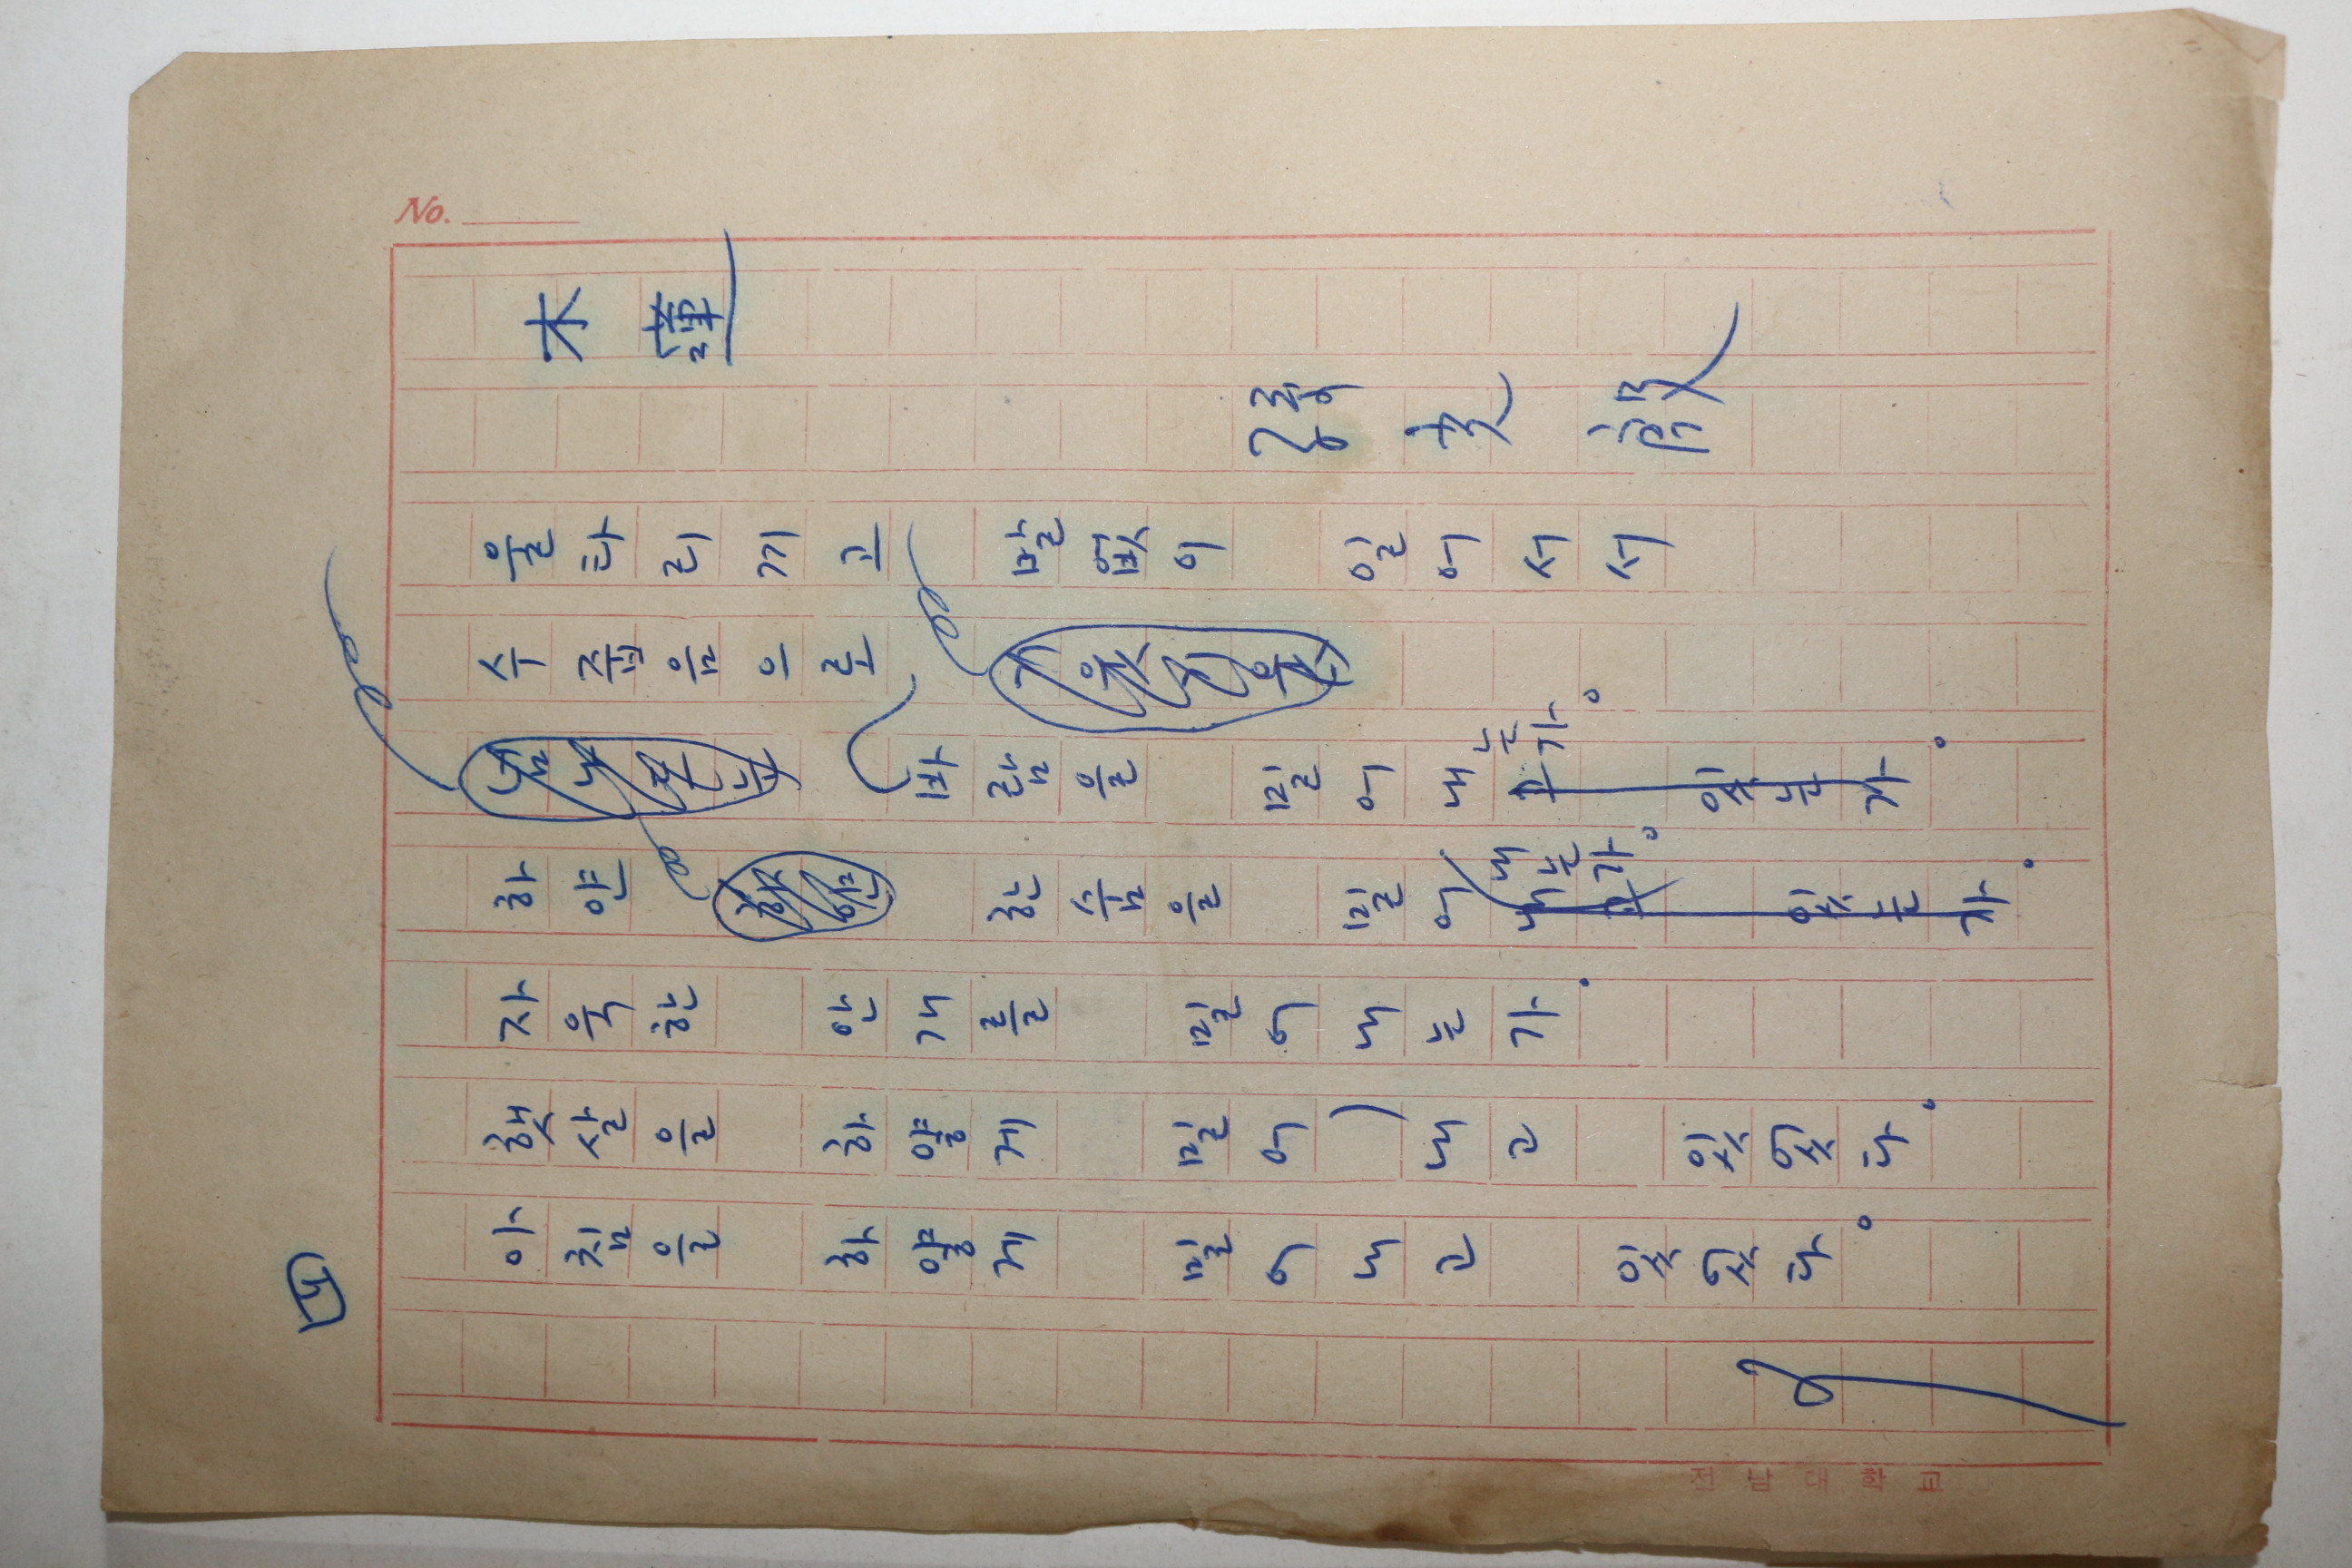 No.
木蓮
孫光殷
울타리끼고 말없이 일어서서
수줍음으로
바람을 밀어내는가。
하얀 한숨을 밀어내는가。
자욱한 안개를 밀어내는가.
햇살을 하얗게 밀어내고 있었다。
아침을 하얗게 밀어내고 있었다。
전남대학교